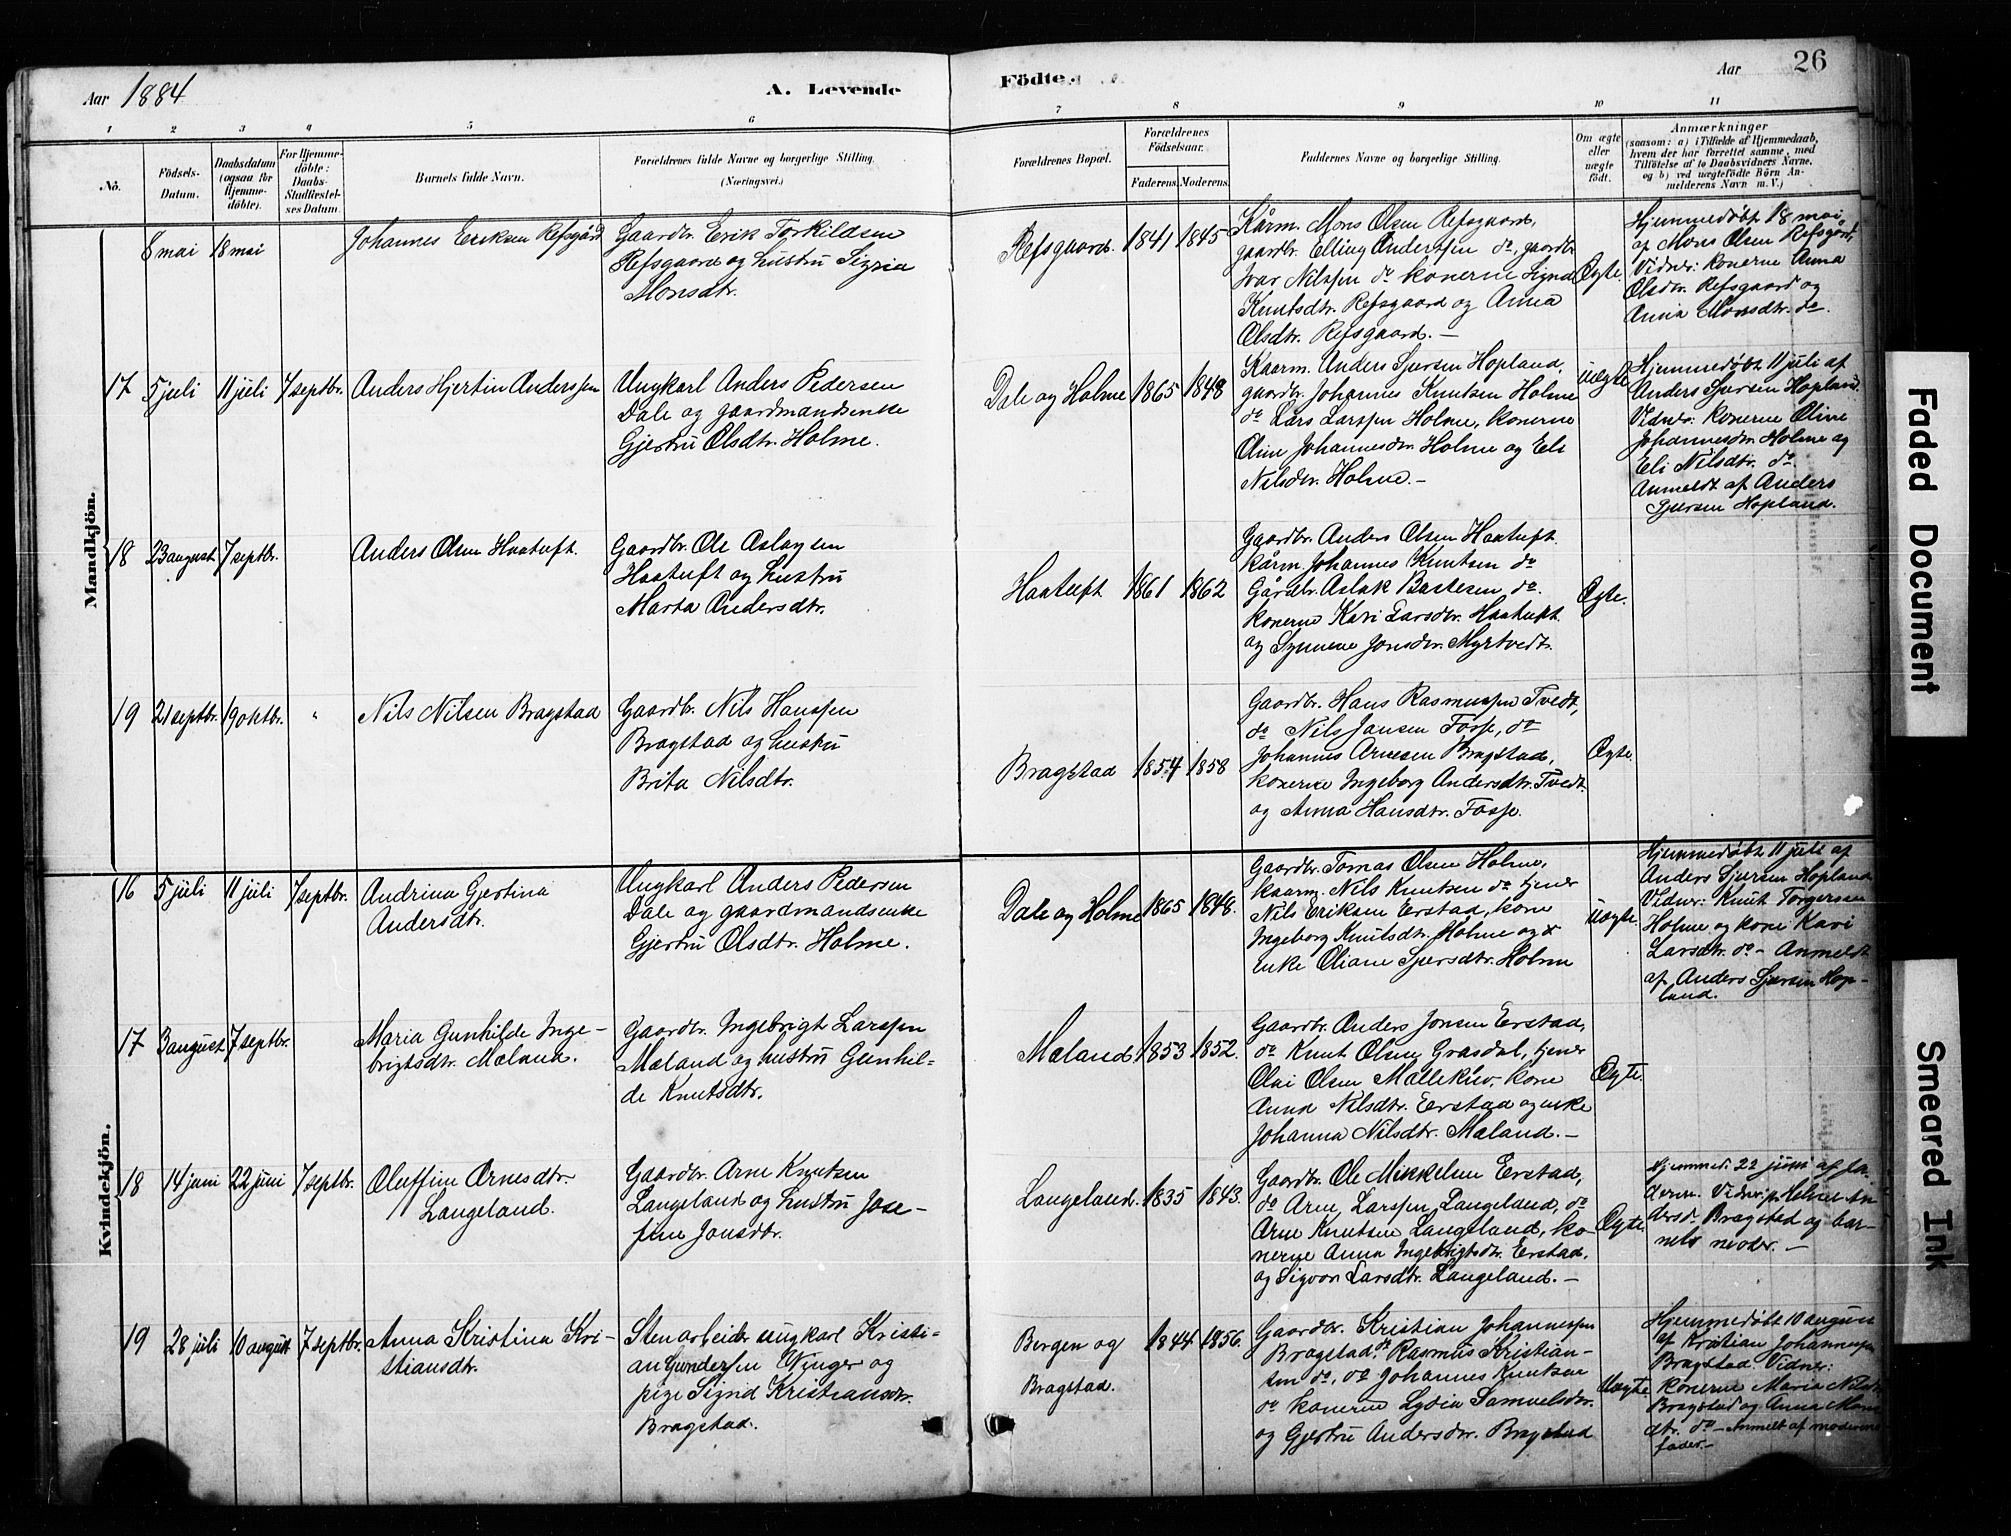 Aar 1884
A. Levende
Födte.
Aar
26
1
2
3
4
5
6
7
8
9
10
11
No.
Födsels-
Datum.
Daabsdatum
(ogsaa for
Hjemme-
döbte).
For Hjemme-
döbte:
Daabs-
Stadfæstel-
ses Datum.
Barnets fulde Navn.
Forældrenes fulde Navne og borgerlige Stilling.
(Næringsvei.)
Forældrenes Bopæl.
Forældrenes
Födselsaar.
Faderens.
Moderens.
Faddernes Navne og borgerlige Stilling.
Om ægte
eller
uægte
födt.
Anmærkninger
(saasom: a) i Tilfælde af Hjemmedaab,
hvem der har forrettet samme, med
Tilföielse af to Daabsvidners Navne,
og b) ved uægtefödte Börn An-
melderens Navn m. V.)
Mandkjön.
8 mai
18 mai
Johannes Eriksen Refsgård
Gaardbr. Erik Torkildsen
Refsgaard og hustru Sigrid
Monsdtr.
Refsgaard.
1841
1845
Kårm. Mons Olsen Refsgaard,
gaardbr. Elling Anderssen do, gaardbr
Ivar Nilssen do konerne Signa
Knutsdtr. Refsgaard og Anna
Olsdtr. Refsgaard. —
Ægte.
Hjemmedøbt 18 mai
af Mons Olsen Refsgård,
Vidner: konerne Anna
Olsdtr. Refsgaard og
Anna Monsdtr. do.
17
5 juli
11 juli
7 septbr.
Anders Hjertin Anderssen
Ungkarl Anders Pedersen
Dale og gaardmandsenke
Gjertru Olsdtr. Holme.
Dale og Holme
1865
1848
Kaarm. Anders Sjursen Hopland,
gaardbr. Johannes Knutsen Holme
do Lars Larssen Holme, konerne
Oline Johannesdtr. Holme og Eli
Nilsdtr. Holme. —
uægte
Hjemmedøbt 11 juli af
Anders Sjursen Hopland.
Vidner: konerne Oline
Johannesdtr. Holme og
Eli Nilsdtr. do.
Anmeldt af Anders
Sjursen Hopland.
18
23 august
7 septbr.
Anders Olsen Haatuft.
Gaardbr. Ole Aslagsen
Haatuft og hustru
Marta Andersdtr.
Haatuft
1861
1862
Gaardbr. Anders Olsen Haatuft.
kårm. Johannes Knutsen do
Gårdbr. Aslak Bastesen do.
konerne Kari Larsdtr. Haatuft.
og Synneve Jonsdtr. Myrtvedt.
Ægte.
19
21 septbr.
19 oktbr.
"
Nils Nilsen Bragstad
Gaardbr. Nils Hanssen
Bragstad og hustru
Brita Nilsdtr.
Bragstad
1854
1858
Gaardbr. Hans Rasmussen Tvedt,
do Nils Jansen Fosse, do
Johannes Arnesen Bragstad,
konerne Ingeborg Andersdtr. Tvedt.
og Anna Hansdtr. Fosse.
Ægte.
Kvindekjön.
16
5 juli
11 juli
7 septbr.
Andrina Gjertina
Andersdtr.
Ungkarl Anders Pedersen
Dale og gaardmandsenke
Gjertru Olsdtr. Holme.
Dale og Holme
1865
1848.
Gaardbr. Tomas Olsen Holme,
kaarm. Nils Knutsen do tjener
Nils Eriksen Erstad, kone
Ingeborg Knutsdtr. Holme og
enke Oliane Sjursdtr. Holme
uægte.
Hjemmedøbt 11 juli af
Anders Sjursen Hopland
Vidner: Knut Torgersen
Holme og kone Kari
Larsdtr. do — Anmeldt
af Anders Sjursen Hop-
land.
17
3 august
7 septbr.
Maria Gunhilde Inge-
brigtsdtr. Mæland.
Gaardbr. Ingebrigt Larssen
Mæland og hustru Gunhil-
de Knutsdtr.
Mæland
1853
1852.
Gaardbr. Anders Jonsen Erstad,
do Knut Olsen Grasdal, tjener
Olai Olsen Møllekus, kone
Anna Nilsdtr. Erstad og enke
Johanna Nilsdtr. Mæland. —
Ægte.
18
14 juni
22 juni
7 septbr.
Oluffine Arnesdtr.
Langeland.
Gaardbr. Arne Knutsen
Langeland og hustru Jose-
fine Jonsdtr.
Langeland.
1835
1843.
Gaardbr. Ole Mikkelsen Erstad,
do Arne Larssen Langeland, do
Arne Knutsen Langeland, ko-
nerne Anna Ingebrigtsdtr. Erstad.
og Sigvor Larsdtr. Langeland. —
Ægte.
Hjemmed. 22 juni af fa-
deren. Vidner: p. Helene An-
dersd. Bragstad og bar-
nets moder. —
19
28 juli
10 august
7 septbr.
Anna Kristina Kri-
stiansdtr.
Stenarbeider ungkarl Kristi-
an Gundersen Vinger og
pige Sigrid Kristiansdtr.
Bragstad.
Bergen og
Bragstad.
1844
1856.
Gaardbr. Kristian Johannessen
Bragstad, do Rasmus Kristian-
sen do, do Johannes Knutsen
do konerne Lydia Samuelsdtr.
og Gjertru Andersdtr. Bragstad
Uægte.
Hjemmedøbt 10 august
af Kristian Johannessen
Bragstad. Vidner:
konerne Maria Nilsdtr
Bragstad og Anna Mons
dtr. do — Anmelt af moderens
fader. —
Faded Document
Smeared Ink